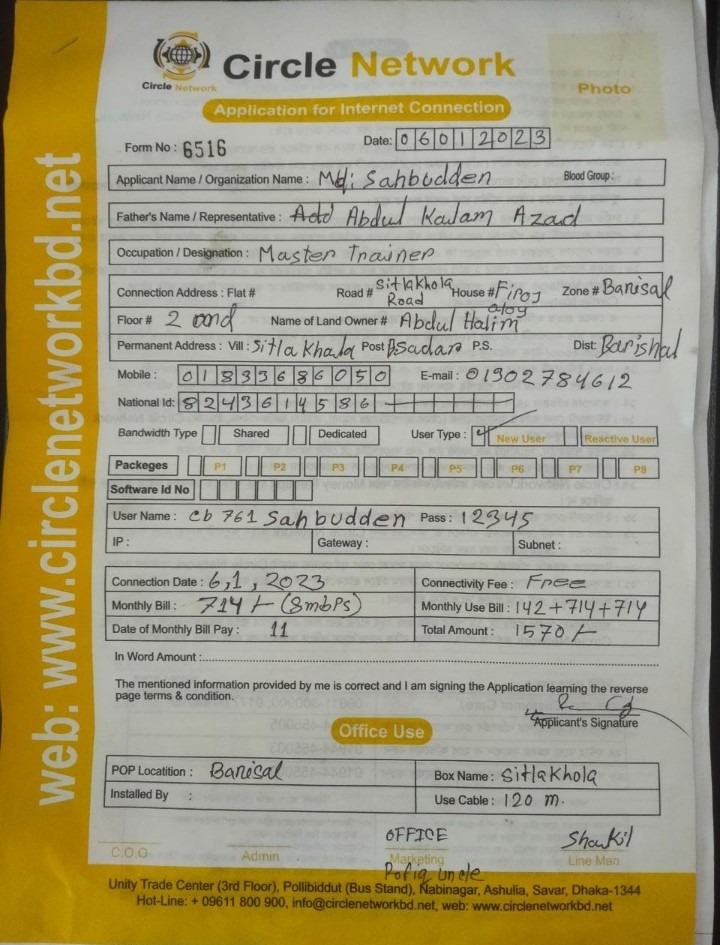 Circle Network
Circle Network
Photo
Application for Internet Connection
Form No : 6516 Date: 06012023
Applicant Name / Organization Name : Md: Sahbudden Blood Group :
Father's Name / Representative : Abdul Kalam Azad
Occupation / Designation : Master Trainer
Connection Address : Flat # Road # Sitlakhola Road House # Firoj Zone # Barisal
Floor # 2 Name of Land Owner # Abdul Halim
Permanent Address : Vill : Sitla Khala Post Bsadar P.S. Dist: Barishal
Mobile : 01833686050 E-mail : 01902784612
National Id: 8243614586
Bandwidth Type Shared Dedicated User Type : New User Reactive User
Packeges P1 P2 P3 P4 P5 P6 P7 P8
Software Id No
User Name : cb 761 Sahbudden Pass : 12345
IP : Gateway : Subnet :
Connection Date : 6,1,2023 Connectivity Fee : Free
Monthly Bill : 714/- (8mbPs) Monthly Use Bill : 142+714+714
Date of Monthly Bill Pay : 11 Total Amount : 1570/-
In Word Amount :
The mentioned information provided by me is correct and I am signing the Application learning the reverse
page terms & condition.
Applicant's Signature
Office Use
POP Locatition : Barisal Box Name : Sitlakhola
Installed By : Use Cable : 120 m.
OFFICE Shakil
C.O.O Admin Marketing Line Man
Uncle
Unity Trade Center (3rd Floor), Pollibiddut (Bus Stand), Nabinagar, Ashulia, Savar, Dhaka-1344
Hot-Line: + 09611 800 900, info@circlenetworkbd.net, web: www.circlenetworkbd.net
web: www.circlenetworkbd.net